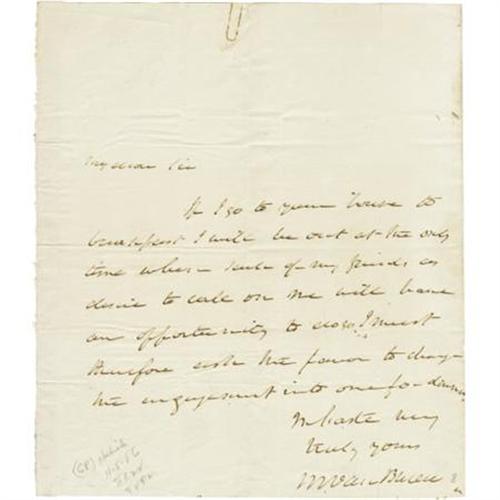 My dear Sir
If I go to your house to
breakfast I will be out at the only
time when such of my friends as
desire to call on me will have
an opportunity to do so. I must
therefore ask the favor to change
the engagement into one for dinner
In haste very
truly yours
M Van Buren